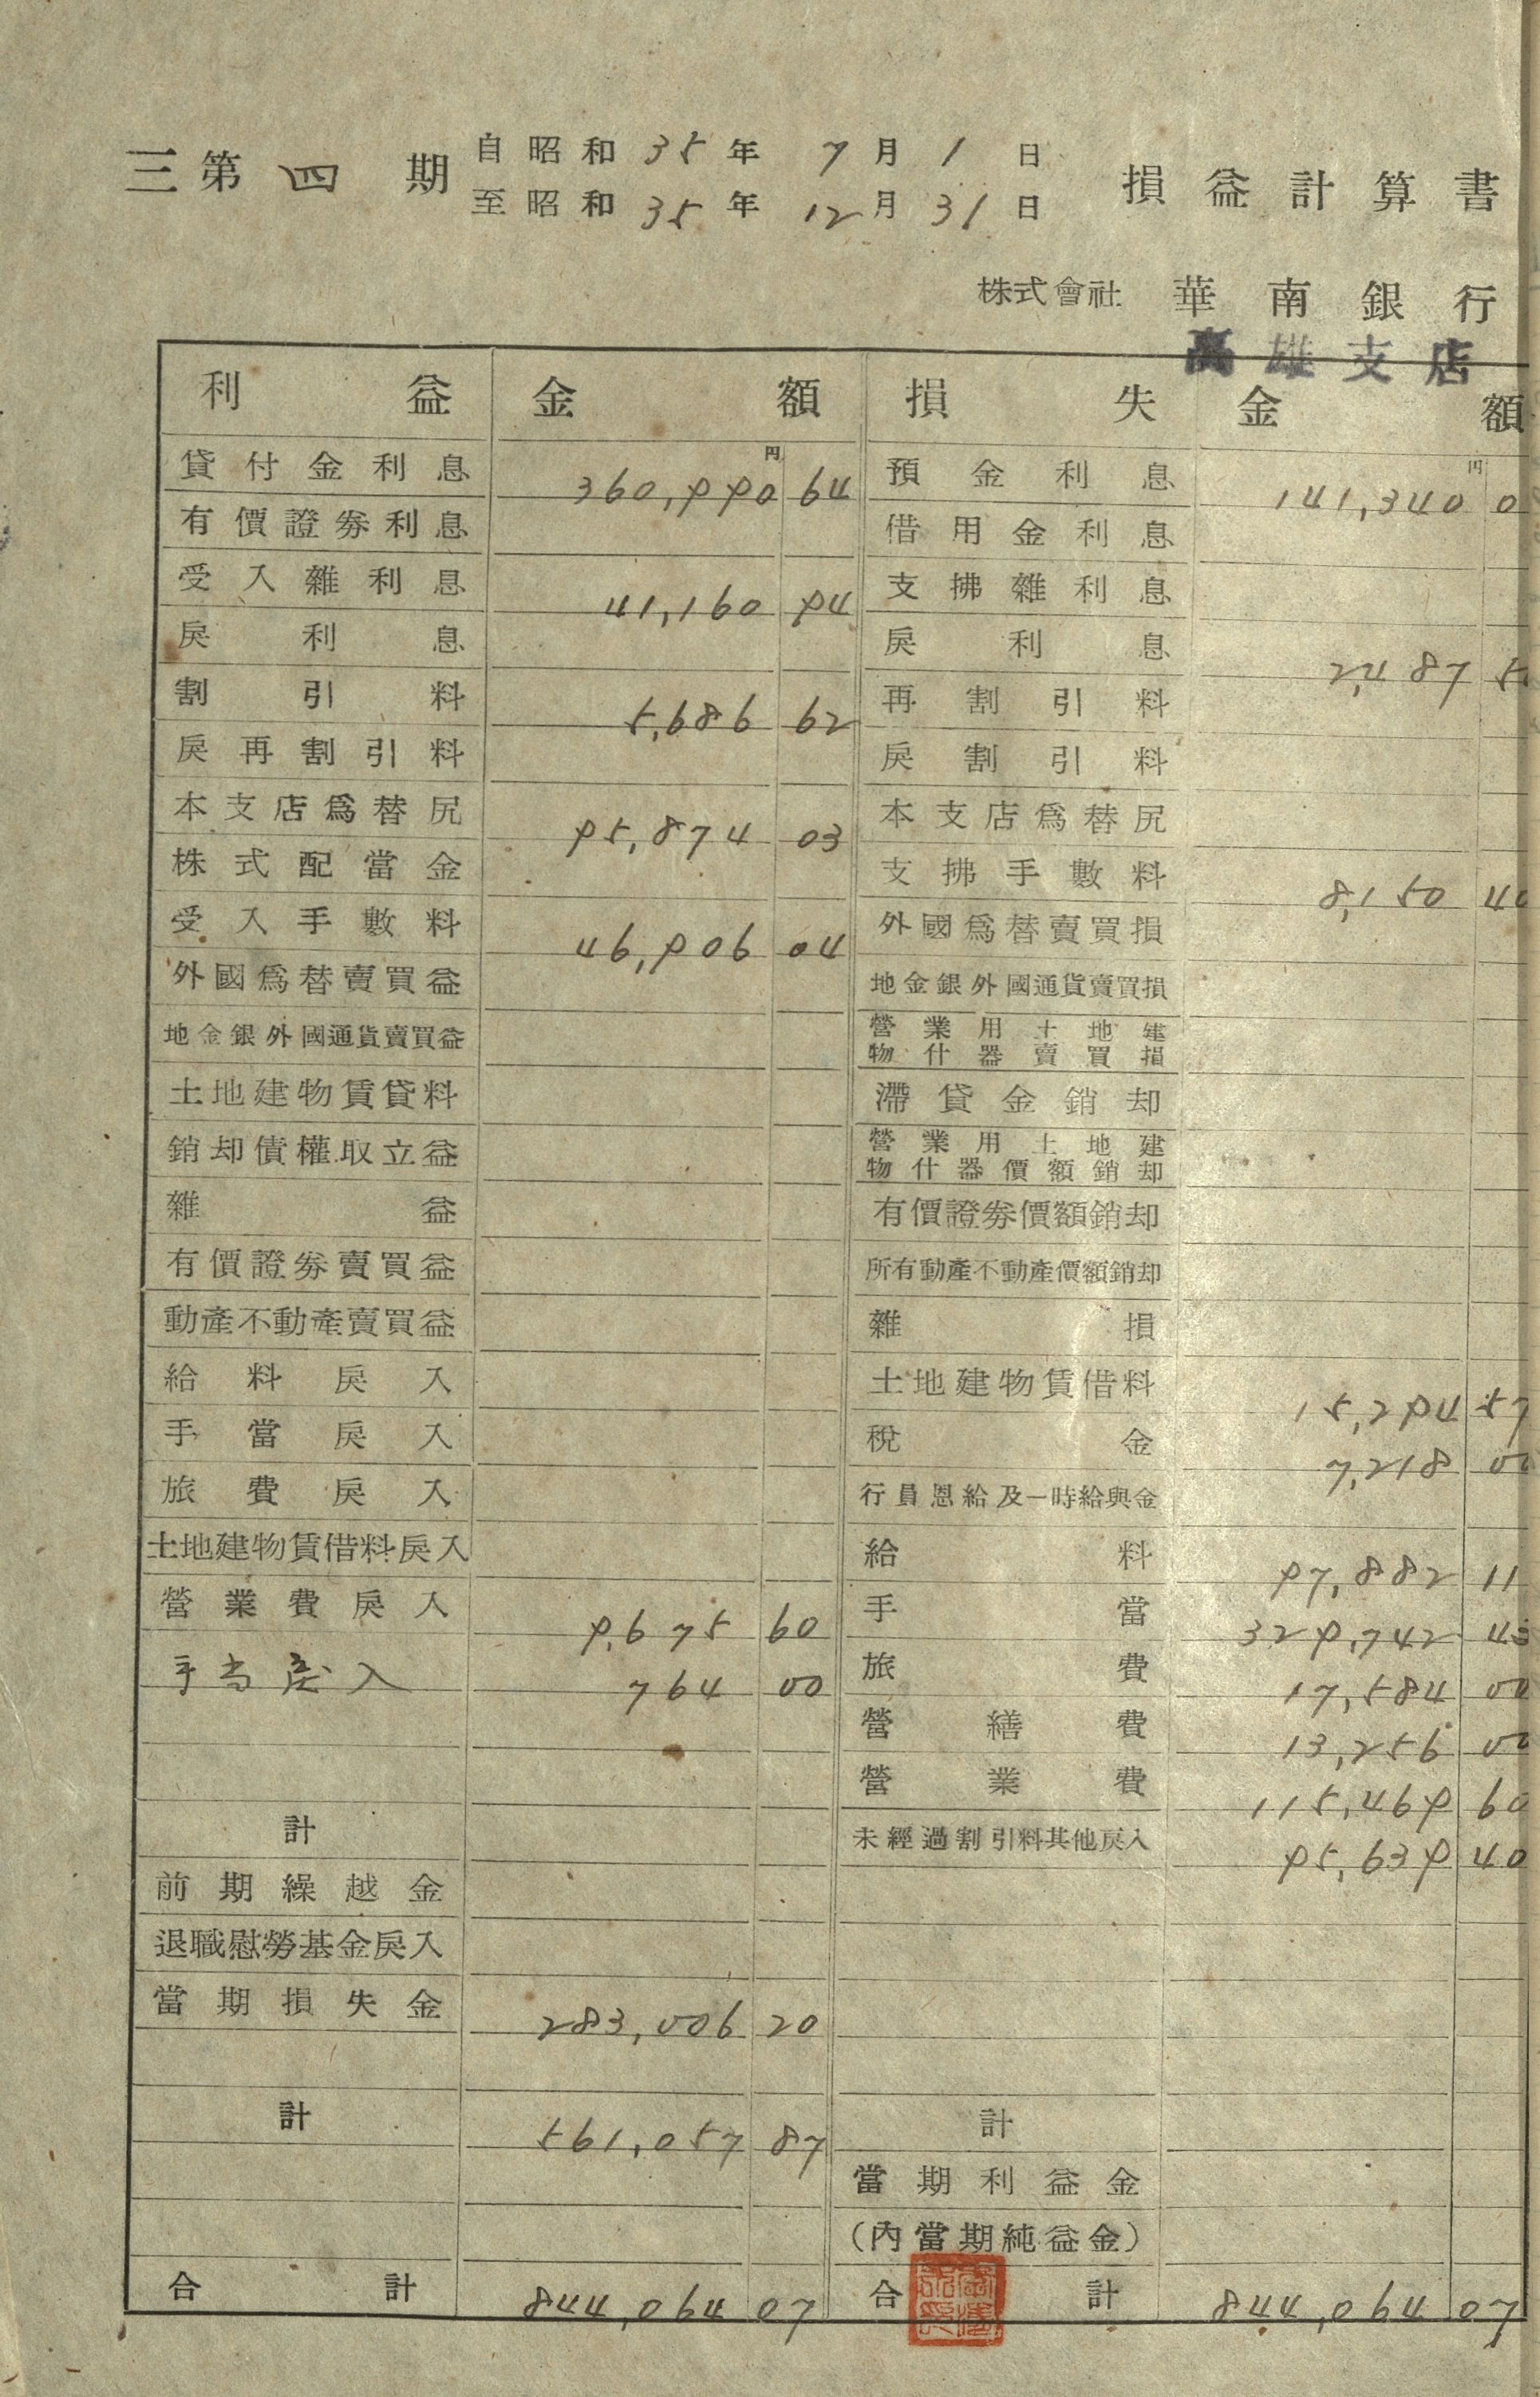 三第四期 自昭和35年7月1日 損益計算書
至昭和35年12月31日
株式會社 華南銀行
高雄支店
利益 金額 損失 金額
貸付金利息 円 360,990 64 預金利息 円 141,340 0
有價證券利息 借用金利息
受入雜利息 41,160 94 支拂雜利息
戾利息 戾利息 2,487 5
割引料 5,686 62 再割引料
戾再割引料 戾割引料
本支店爲替尻 95,874 03 本支店爲替尻
株式配當金 支拂手數料 8,150 40
受入手數料 46,906 04 外國爲替賣買損
外國爲替賣買益 地金銀外國通貨賣買損
地金銀外國通貨賣買益 營業用土地建
物什器賣買損
土地建物賃貸料 滯貸金銷却
銷却債權取立益 營業用土地建
物什器價額銷却
雜益 有價證券價額銷却
有價證券賣買益 所有動產不動產價額銷却
動產不動產賣買益 雜損
給料戾入 土地建物賃借料 15,294 57
手當戾入 稅金 7,218 00
旅費戾入 行員恩給及一時給與金
土地建物賃借料戾入 給料 97,882 11
營業費戾入 9,675 60 手當 329,742 43
手当戾入 764 00 旅費 17,584 00
營繕費 13,256 00
營業費 115,469 60
計 未經過割引料其他戾入 95,639 40
前期繰越金
退職慰勞基金戾入
當期損失金 283,006 20
計 561,057 87 計
當期利益金
(內當期純益金)
合計 844,064 07 合計 844,064 07